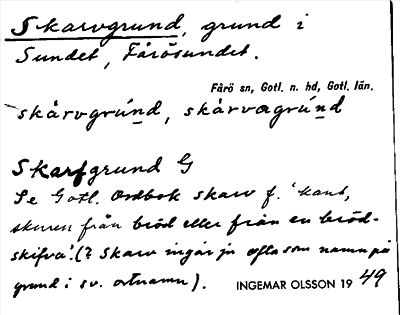 Skarvgrund, grund i
Sundet, Fårösundet.
Fårö sn, Gotl. n. hd, Gotl. län.
skårvgrúnd, skårvagrúnd
Skarfgrund G
Se Gotl. Ordbok skarv f. 'kant,
skuren från bröd eller från en bröd-
skifva'. (? Skarv ingår ju ofta som namn på
grund i sv. ortnamn).
INGEMAR OLSSON 1949